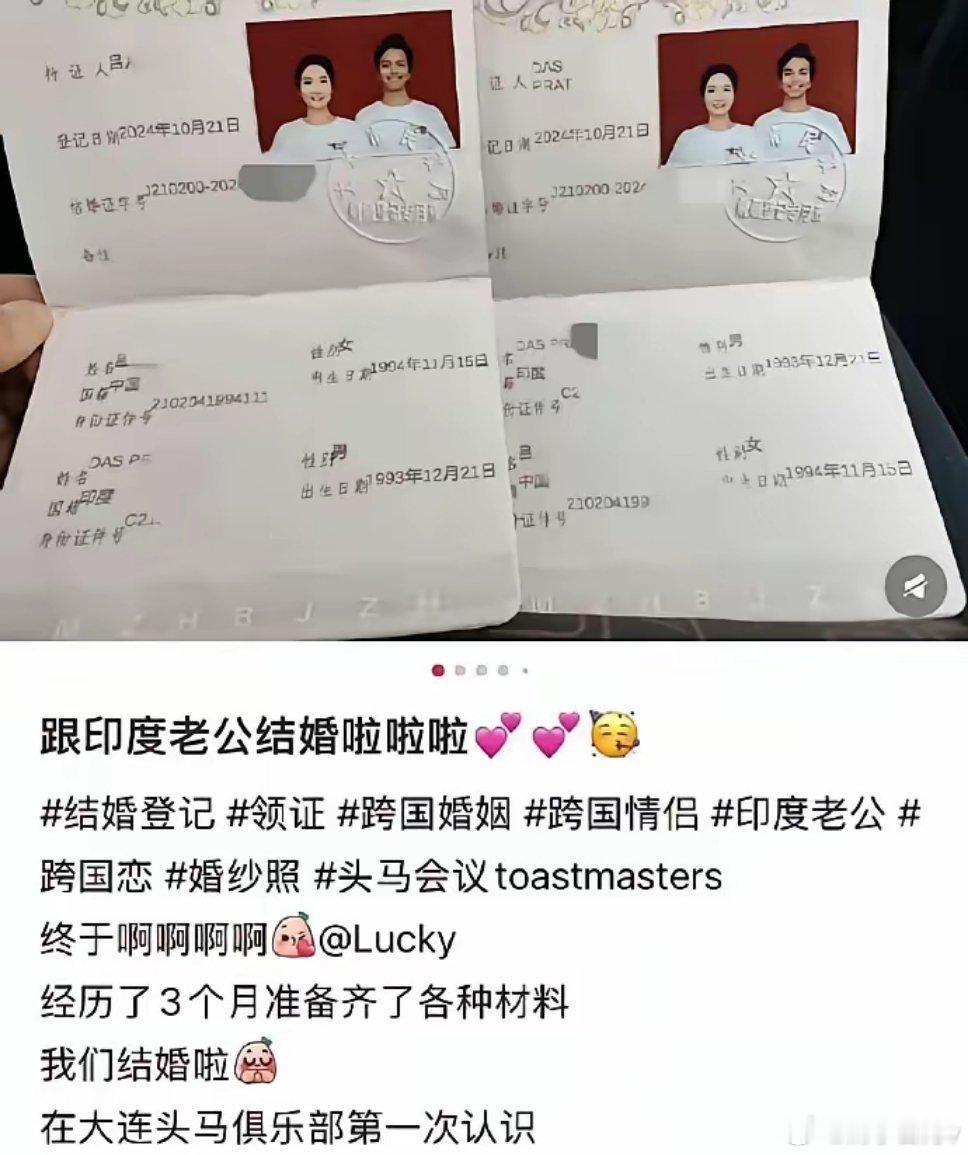 持证人 吕
登记日期 2024年10月21日
结婚证字号 J210200-202
备注
姓名 吕
性别 女
国籍 中国
出生日期 1994年11月15日
身份证件号 2102041994111
姓名 DAS PR
性别 男
国籍 印度
出生日期 1993年12月21日
身份证件号 C2
证人 DAS
PRAT
记日期 2024年10月21日
婚证字号 J210200-202
注
名 DAS PR
性别 男
印度
出生日期 1993年12月21日
份证件号 C2
吕
性别 女
中国
出生日期 1994年11月15日
证件号 210204199
跟印度老公结婚啦啦啦💕💕🥳
#结婚登记 #领证 #跨国婚姻 #跨国情侣 #印度老公 #
跨国恋 #婚纱照 #头马会议toastmasters
终于啊啊啊啊@Lucky
经历了3个月准备齐了各种材料
我们结婚啦
在大连头马俱乐部第一次认识